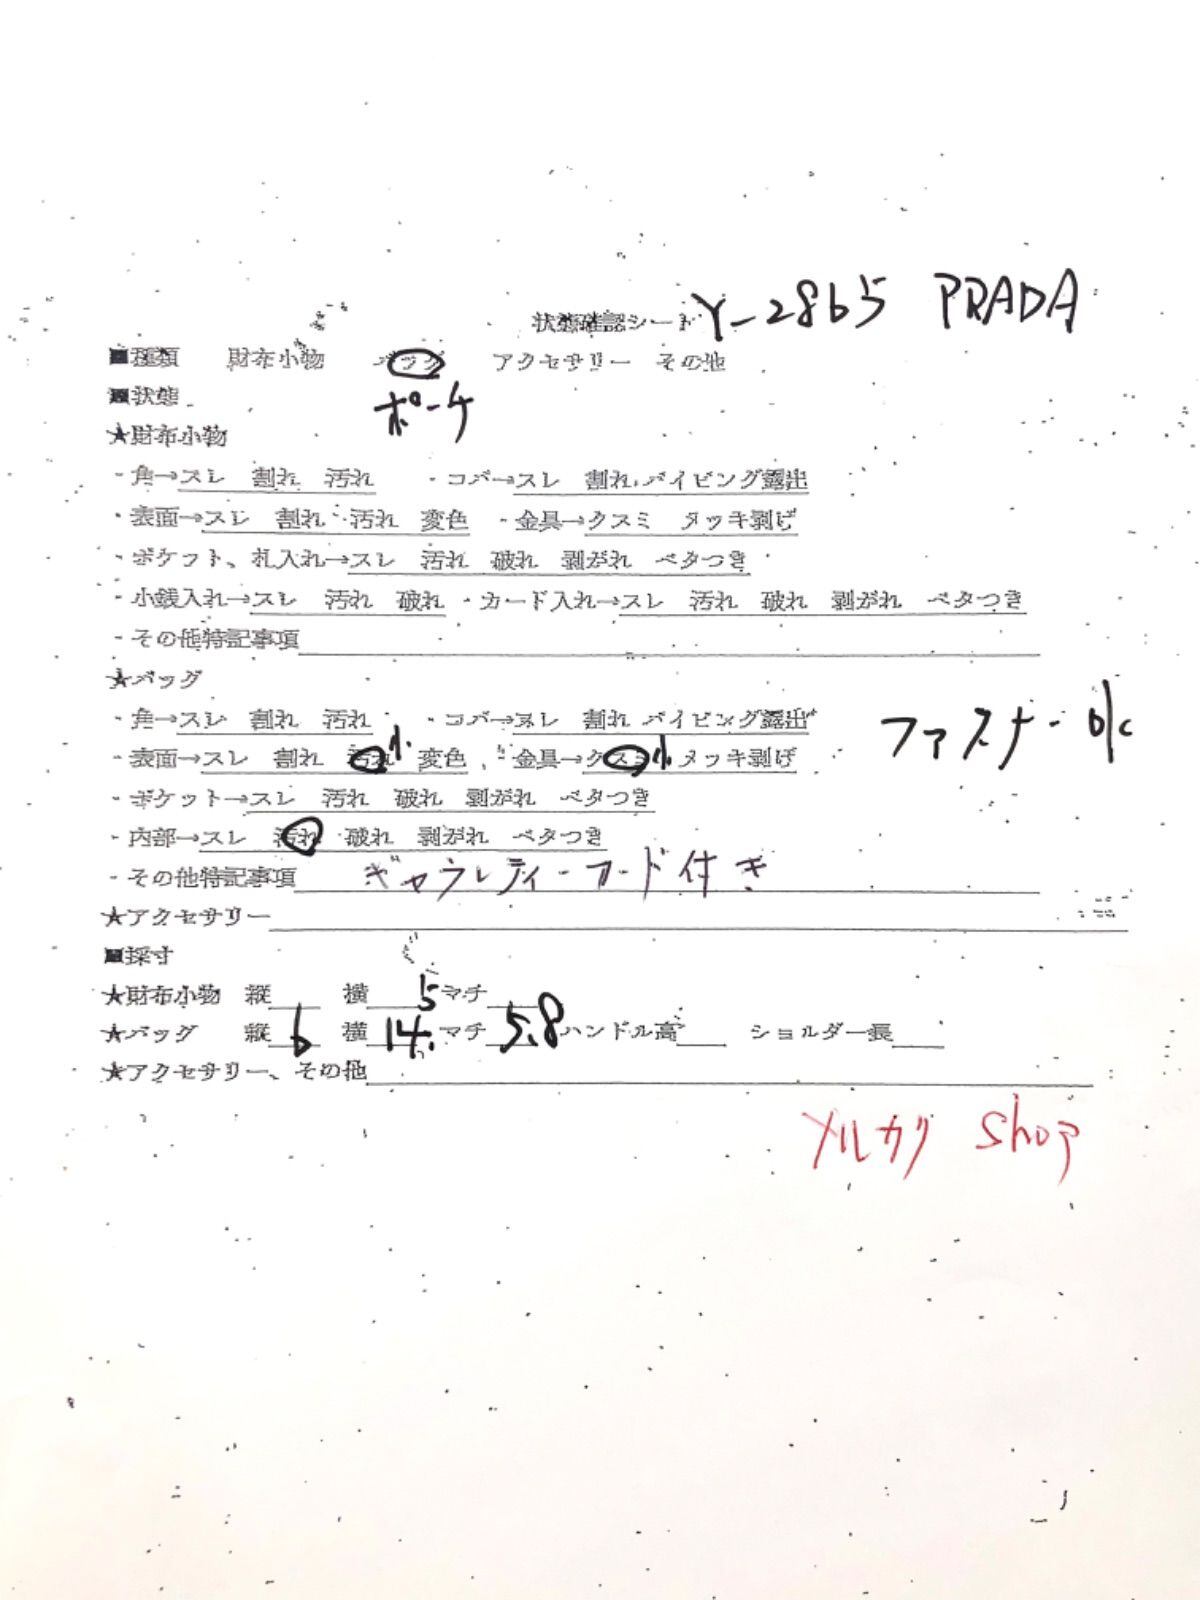 状態確認シート Y-2865 PRADA
■種類 財布小物 バッグ アクセサリー その他
■状態 ポーチ
★財布小物
・角→スレ 割れ 汚れ ・コバ→スレ 割れ パイピング露出
・表面→スレ 割れ 汚れ 変色 ・金具→クスミ メッキ剥げ
・ポケット、札入れ→スレ 汚れ 破れ 剥がれ ベタつき
・小銭入れ→スレ 汚れ 破れ ・カード入れ→スレ 汚れ 破れ 剥がれ ベタつき
・その他特記事項
★バッグ
・角→スレ 割れ 汚れ ・コバ→スレ 割れ パイピング露出 ファスナー ok
・表面→スレ 割れ 汚れ 小 変色 ・金具→クスミ 小 メッキ剥げ
・ポケット→スレ 汚れ 破れ 剥がれ ベタつき
・内部→スレ 汚れ 破れ 剥がれ ベタつき
・その他特記事項 ギャランティーカード付き
★アクセサリー
■採寸
★財布小物 縦 横 マチ
★バッグ 縦 6 横 14.5 マチ 5.8 ハンドル高 ショルダー長
★アクセサリー、その他
メルカリ Shop